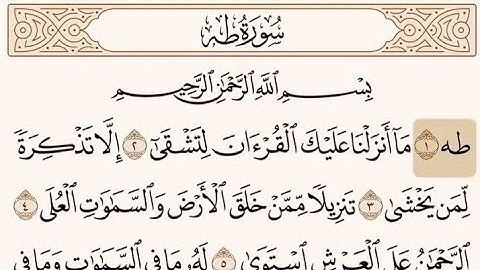 سُورَةُ طه
بِسْمِ اللَّهِ الرَّحْمَٰنِ الرَّحِيمِ
طه ١ مَآ أَنزَلْنَا عَلَيْكَ الْقُرْءَانَ لِتَشْقَىٰٓ ٢ إِلَّا تَذْكِرَةً
لِّمَن يَخْشَىٰ ٣ تَنزِيلًا مِّمَّنْ خَلَقَ الْأَرْضَ وَالسَّمَٰوَٰتِ الْعُلَى ٤
الرَّحْمَٰنُ عَلَى الْعَرْشِ اسْتَوَىٰ ٥ لَهُۥ مَا فِي السَّمَٰوَٰتِ وَمَا فِي